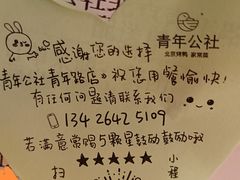 感谢您的选择
青年公社
北京烤鸭 家常菜
青年公社青年路店》祝您用餐愉快!
有任何问题请联系我们
134 2642 5109
若满意常唱5颗星鼓励鼓励哦
★★★★★
扫
小程